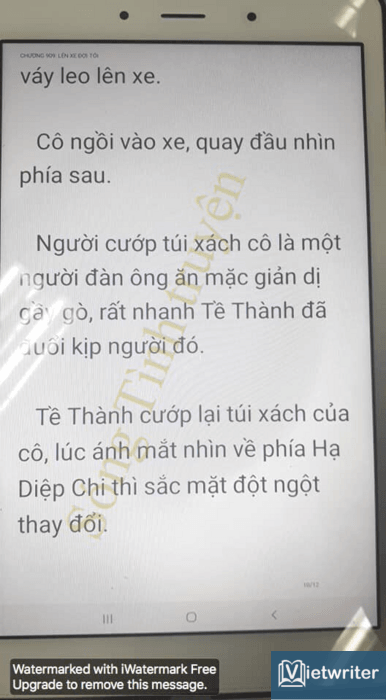 CHƯƠNG 909: LÊN XE ĐỢI TÔI
váy leo lên xe.
Cô ngồi vào xe, quay đầu nhìn
phía sau.
Người cướp túi xách cô là một
người đàn ông ăn mặc giản dị
gầy gò, rất nhanh Tề Thành đã
đuổi kịp người đó.
Tề Thành cướp lại túi xách của
cô, lúc ánh mắt nhìn về phía Hạ
Diệp Chi thì sắc mặt đột ngột
thay đổi.
Sóng Tình truyện
10/12
Watermarked with iWatermark Free
Upgrade to remove this message.
Vietwriter